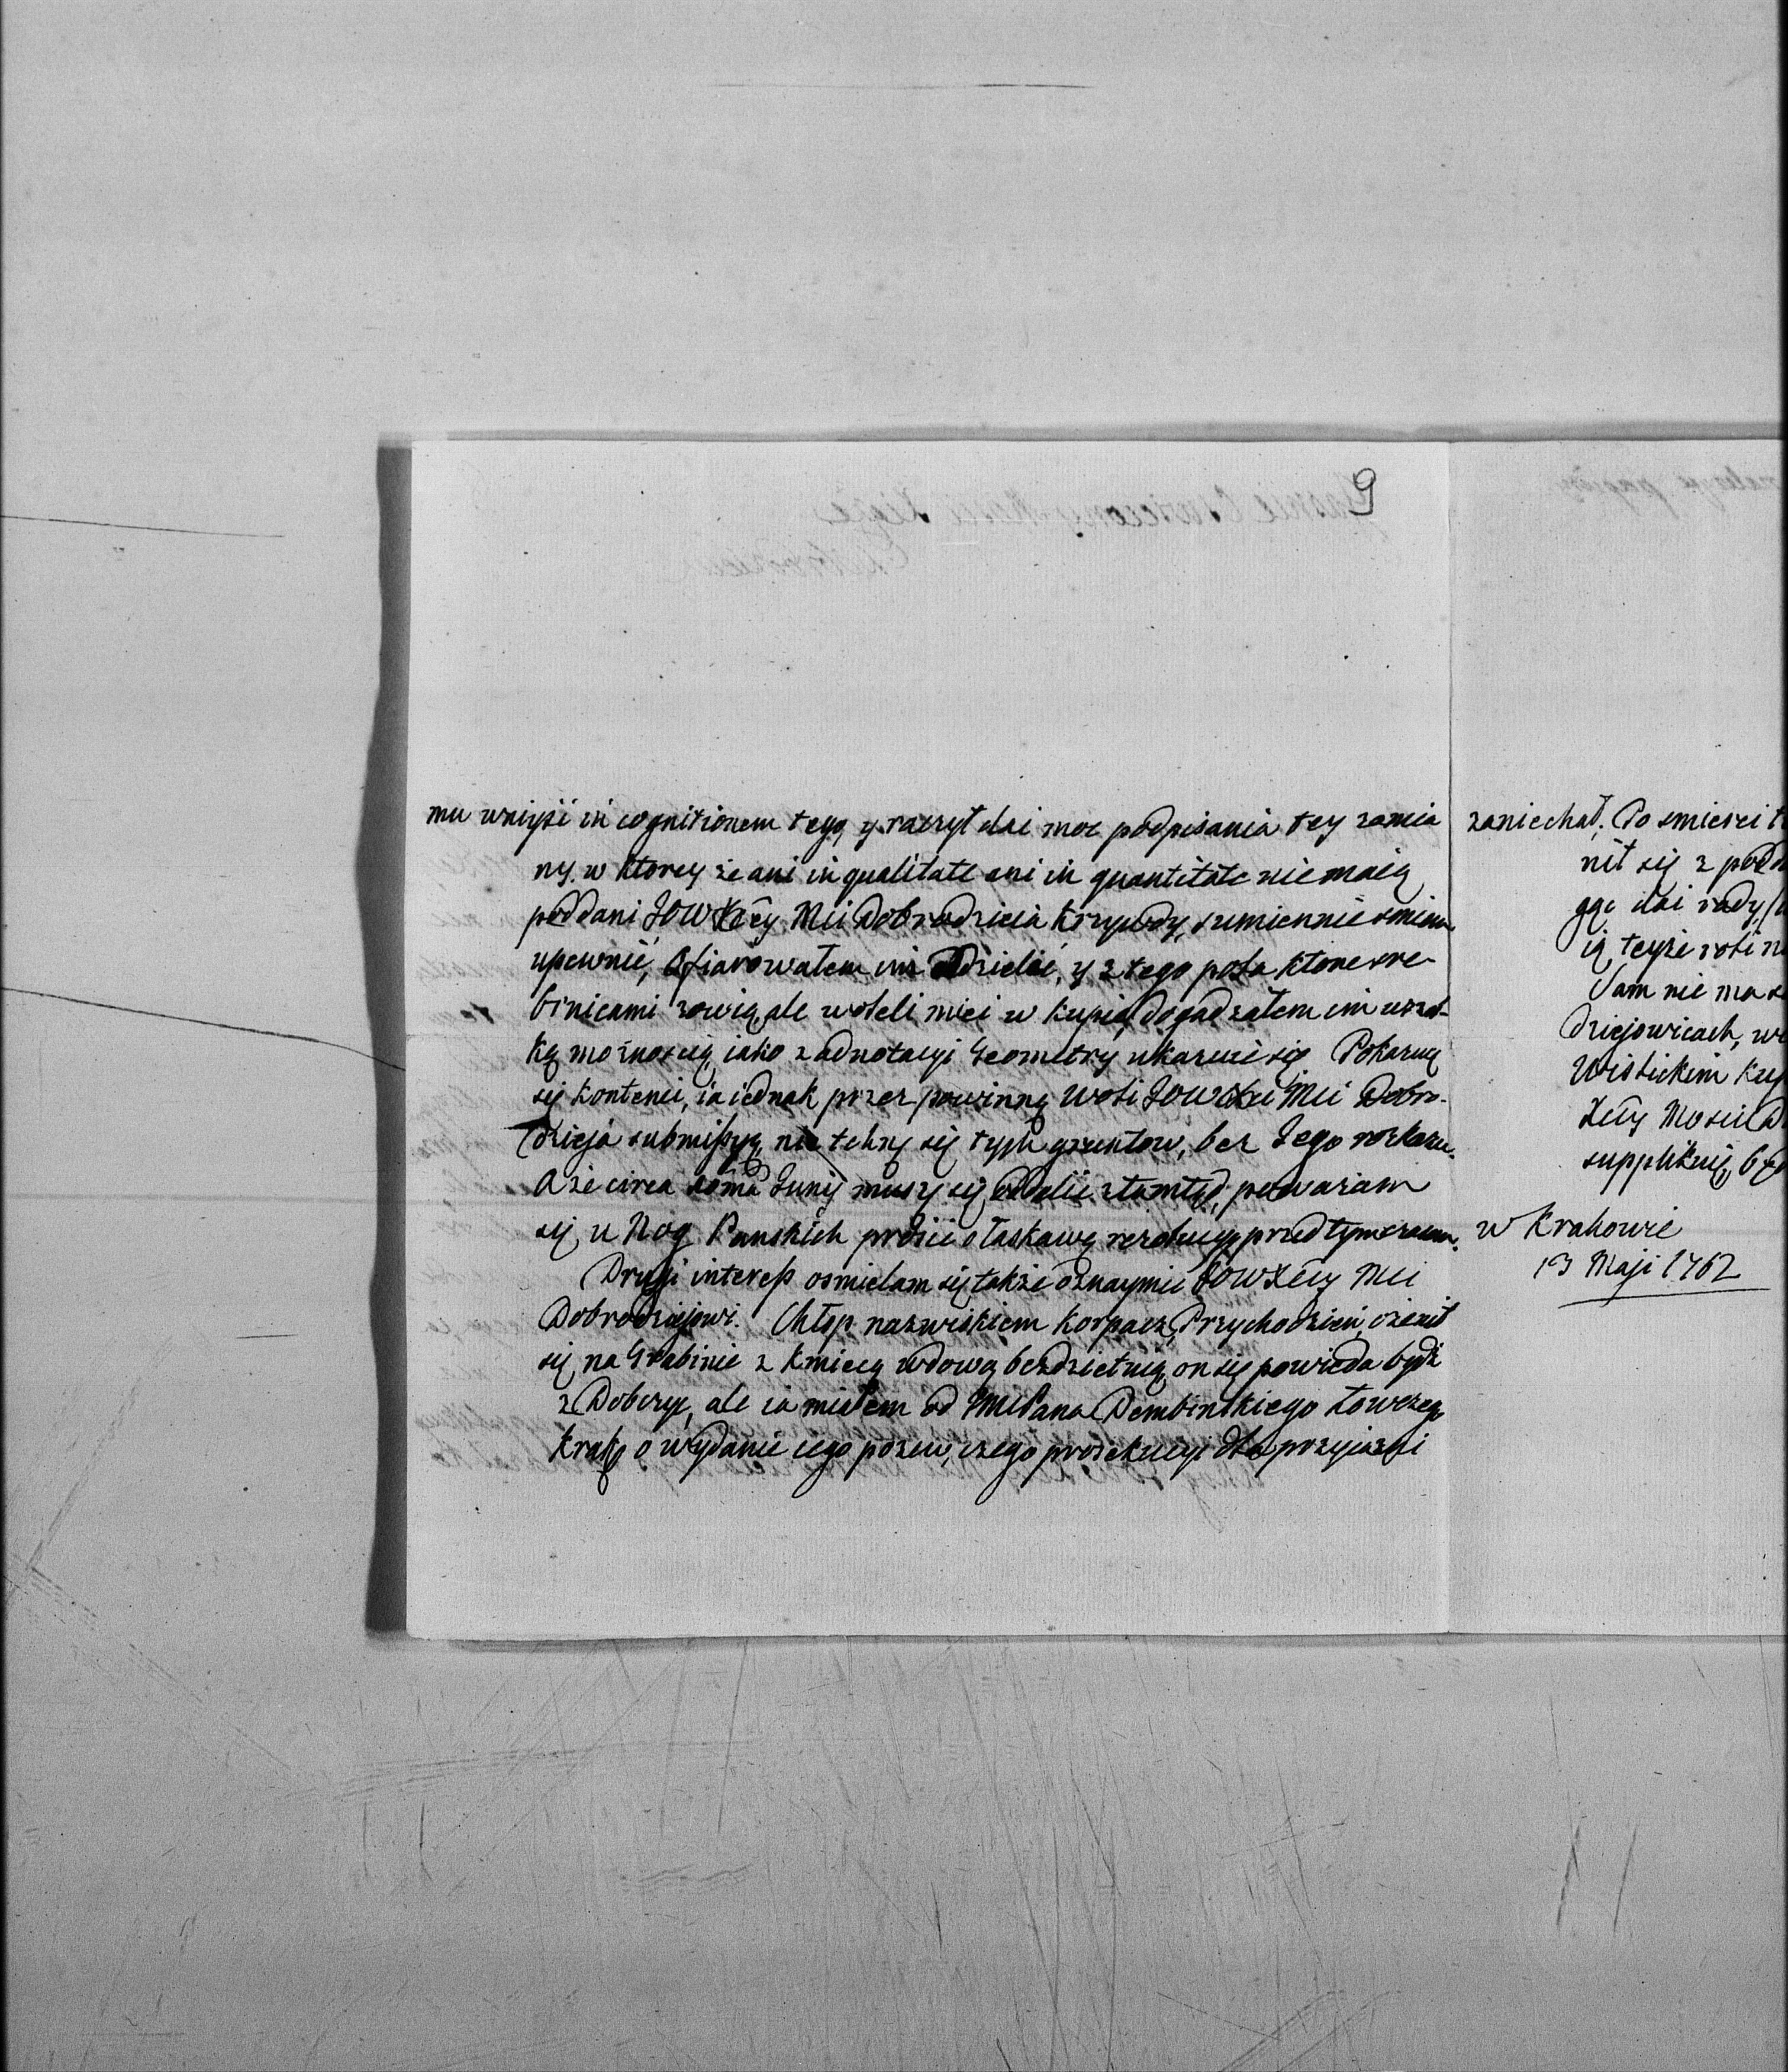 9
mu wniyść in cognitionem tego, y raczył dać moc podpisania tey zamia
ny. w ktorey że ani in qualitate ani in quantitate nie maią
poddani JOWXcey Mci Dobrodzieia krzywdy, sumiennie smiem
upewnić, Ofiarowałem im Dzielić, y z tego pola ktore
binicami zowią, ale woleli mieć w kupie, dogadzałem im wszel-
ką możnością, iako z adnotacyi Geometry ukazuie się Pokazuą
się kontenci, ia iednak przez powinną woli JOWXci Mci Dobro-
dzieja submissyą, nie tchnę się tych gruntow, bez Jego rozkazu.
A że circa Junij muszę się oddalić ztamtąd, poważam
się u Nog Panskich prosić o łaskawą rezolucyą przed tym czasem.
Drugi interess osmielam się także oznaymić JOWXcey Mci
Dobrodziejowi. Chłop nazwiskiem Korpacz, Przychodzień, ożenił
się na Grabinie z kmiecą wdową bezdzietną, on się powieda bydź
z Dobczyc, ale ia miałem od JMCPana Dembinskiego Łowczego
Krakº o wydanie iego pozew, czego prozekucyi dla przyiazni
zaniechał. Po smierci t
nił się z podd
gąc dać rady,
ią, teyże roli n
Sam nie ma
dziejowicach, w
Wislickim kup
Xcey Mosci D
supplikuię, by
w Krakowie
13 Maji 1762